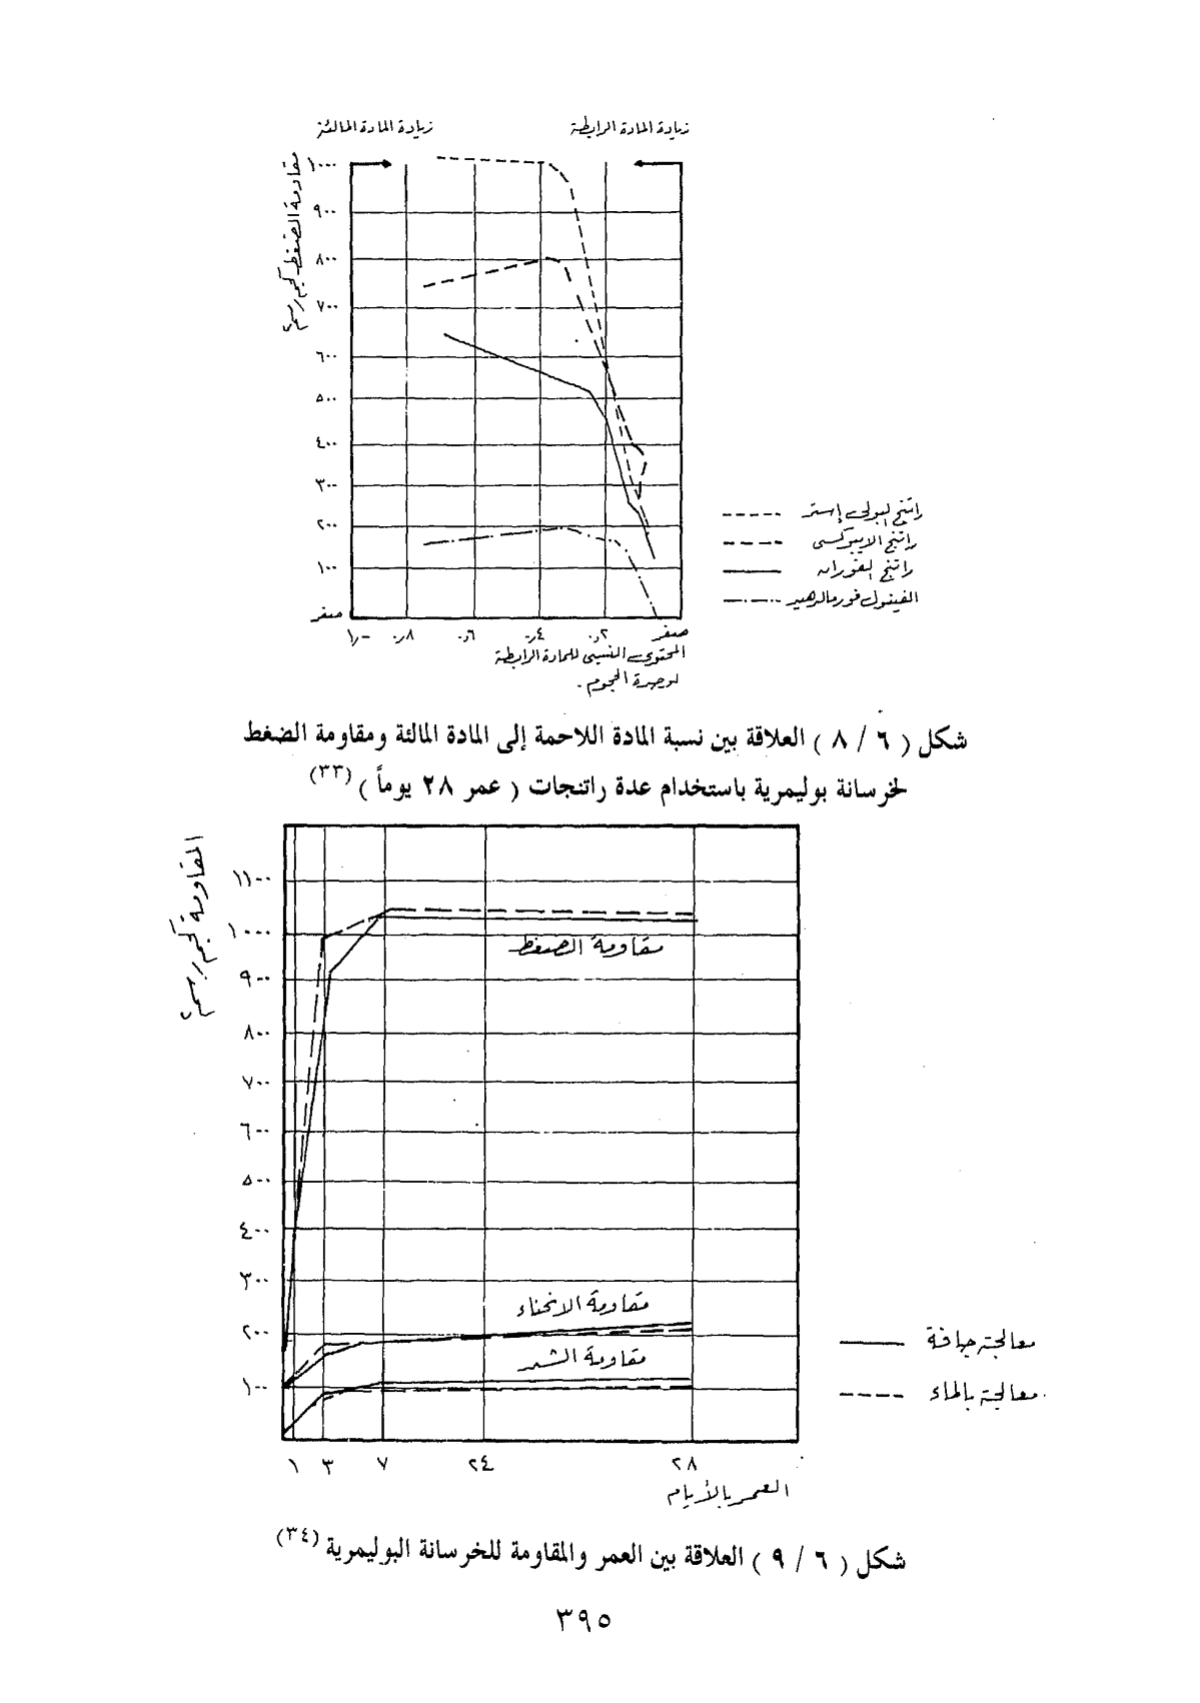 زيادة المادة المالئة
زيادة المادة الرابطة
مقاومة الضغط كجم/سم٢
١٠٠٠
٩٠٠
٨٠٠
٧٠٠
٦٠٠
٥٠٠
٤٠٠
٣٠٠
٢٠٠
١٠٠
صفر
١٫٠ ٠٫٨ ٠٫٦ ٠٫٤ ٠٫٢ صفر
المحتوى النسبى للمادة الرابطة
لوحدة الحجوم .
راتنج البولى إستر
راتنج الايبوكسى
راتنج الفوران
الفينول فورمالدهيد
شكل ( ٦ / ٨ ) العلاقة بين نسبة المادة اللاحمة إلى المادة المالئة ومقاومة الضغط
لخرسانة بوليمرية باستخدام عدة راتنجات ( عمر ٢٨ يوماً ) (٣٣)
المقاومة كجم/سم٢
١١٠٠
١٠٠٠
٩٠٠
٨٠٠
٧٠٠
٦٠٠
٥٠٠
٤٠٠
٣٠٠
٢٠٠
١٠٠
مقاومة الضغط
مقاومة الانحناء
مقاومة الشد
معالجة جافة
معالجة بالماء
١ ٣ ٧ ٢٤ ٢٨
العمر بالأيام
شكل ( ٦ / ٩ ) العلاقة بين العمر والمقاومة للخرسانة البوليمرية (٣٤)
٣٩٥